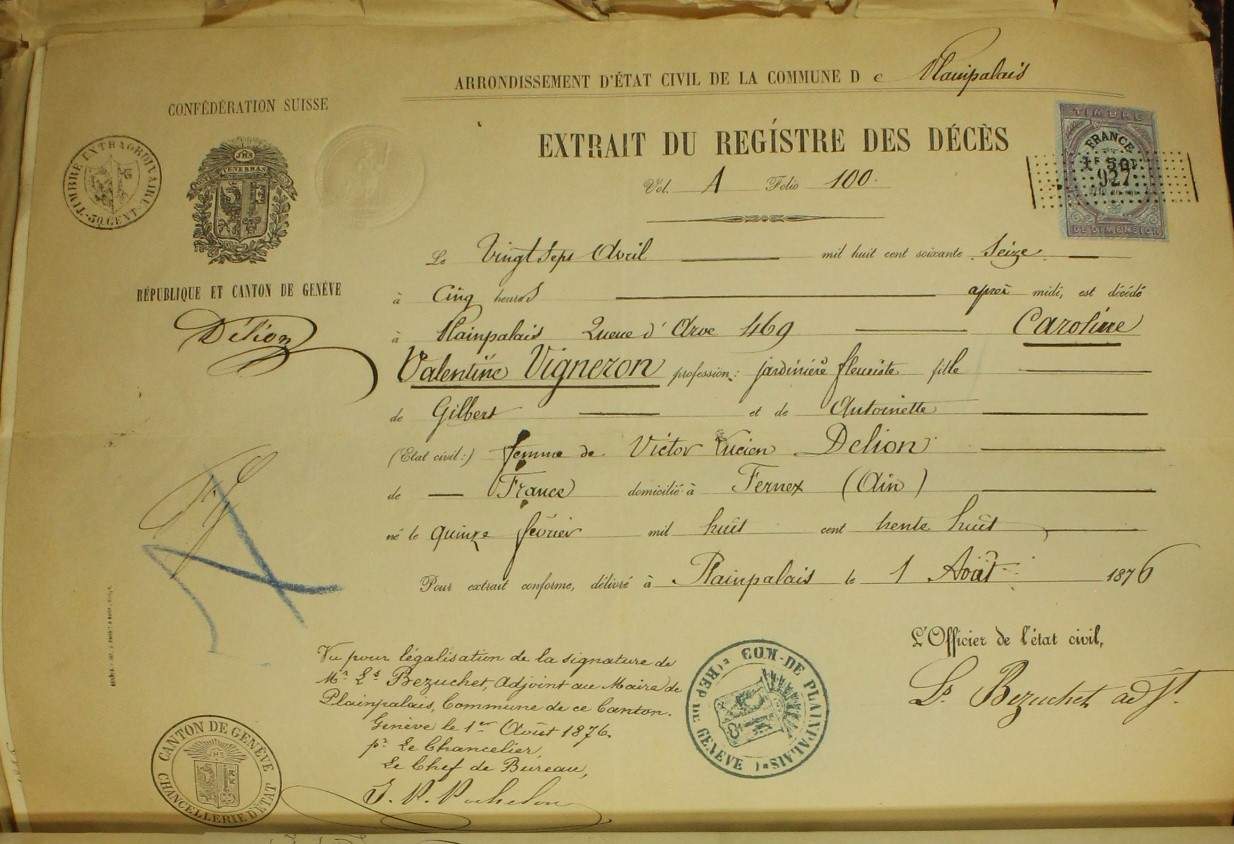 ARRONDISSEMENT D'ÉTAT CIVIL DE LA COMMUNE D e Plainpalais
CONFÉDÉRATION SUISSE
TIMBRE EXTRAORDINAIRE
30 CENT.
JHS
TENEBRAS
RÉPUBLIQUE ET CANTON DE GENÈVE
Délion
EXTRAIT DU REGISTRE DES DÉCÈS
Vol. A Folio 100
TIMBRE
FRANCE
1F 50
927
DE DIMENSION
Le Vingt Sept Avril mil huit cent soixante Seize
à Cinq heures après midi, est décédé
à Plainpalais Queue d'Arve 469 Caroline
Valentine Vigneron profession: jardinière fleuriste fille
de Gilbert et de Antoinette
(Etat civil:) femme de Victor Lucien Delion
de France domicilié à Fernex (Ain)
né le quinze février mil huit cent trente huit
Pour extrait conforme, délivré à Plainpalais le 1 Août 1876
L'Officier de l'état civil,
Ls. Bezuchet adjt.
Vu pour légalisation de la signature de
Mr. Ls. Bezuchet, Adjoint au Maire de
Plainpalais, Commune de ce Canton.
Genève le 1er Août 1876.
pr. Le Chancelier,
Le Chef de Bureau,
COM. DE PLAINPALAIS
(REP. DE GENEVE)
CANTON DE GENÈVE
CHANCELLERIE D'ETAT